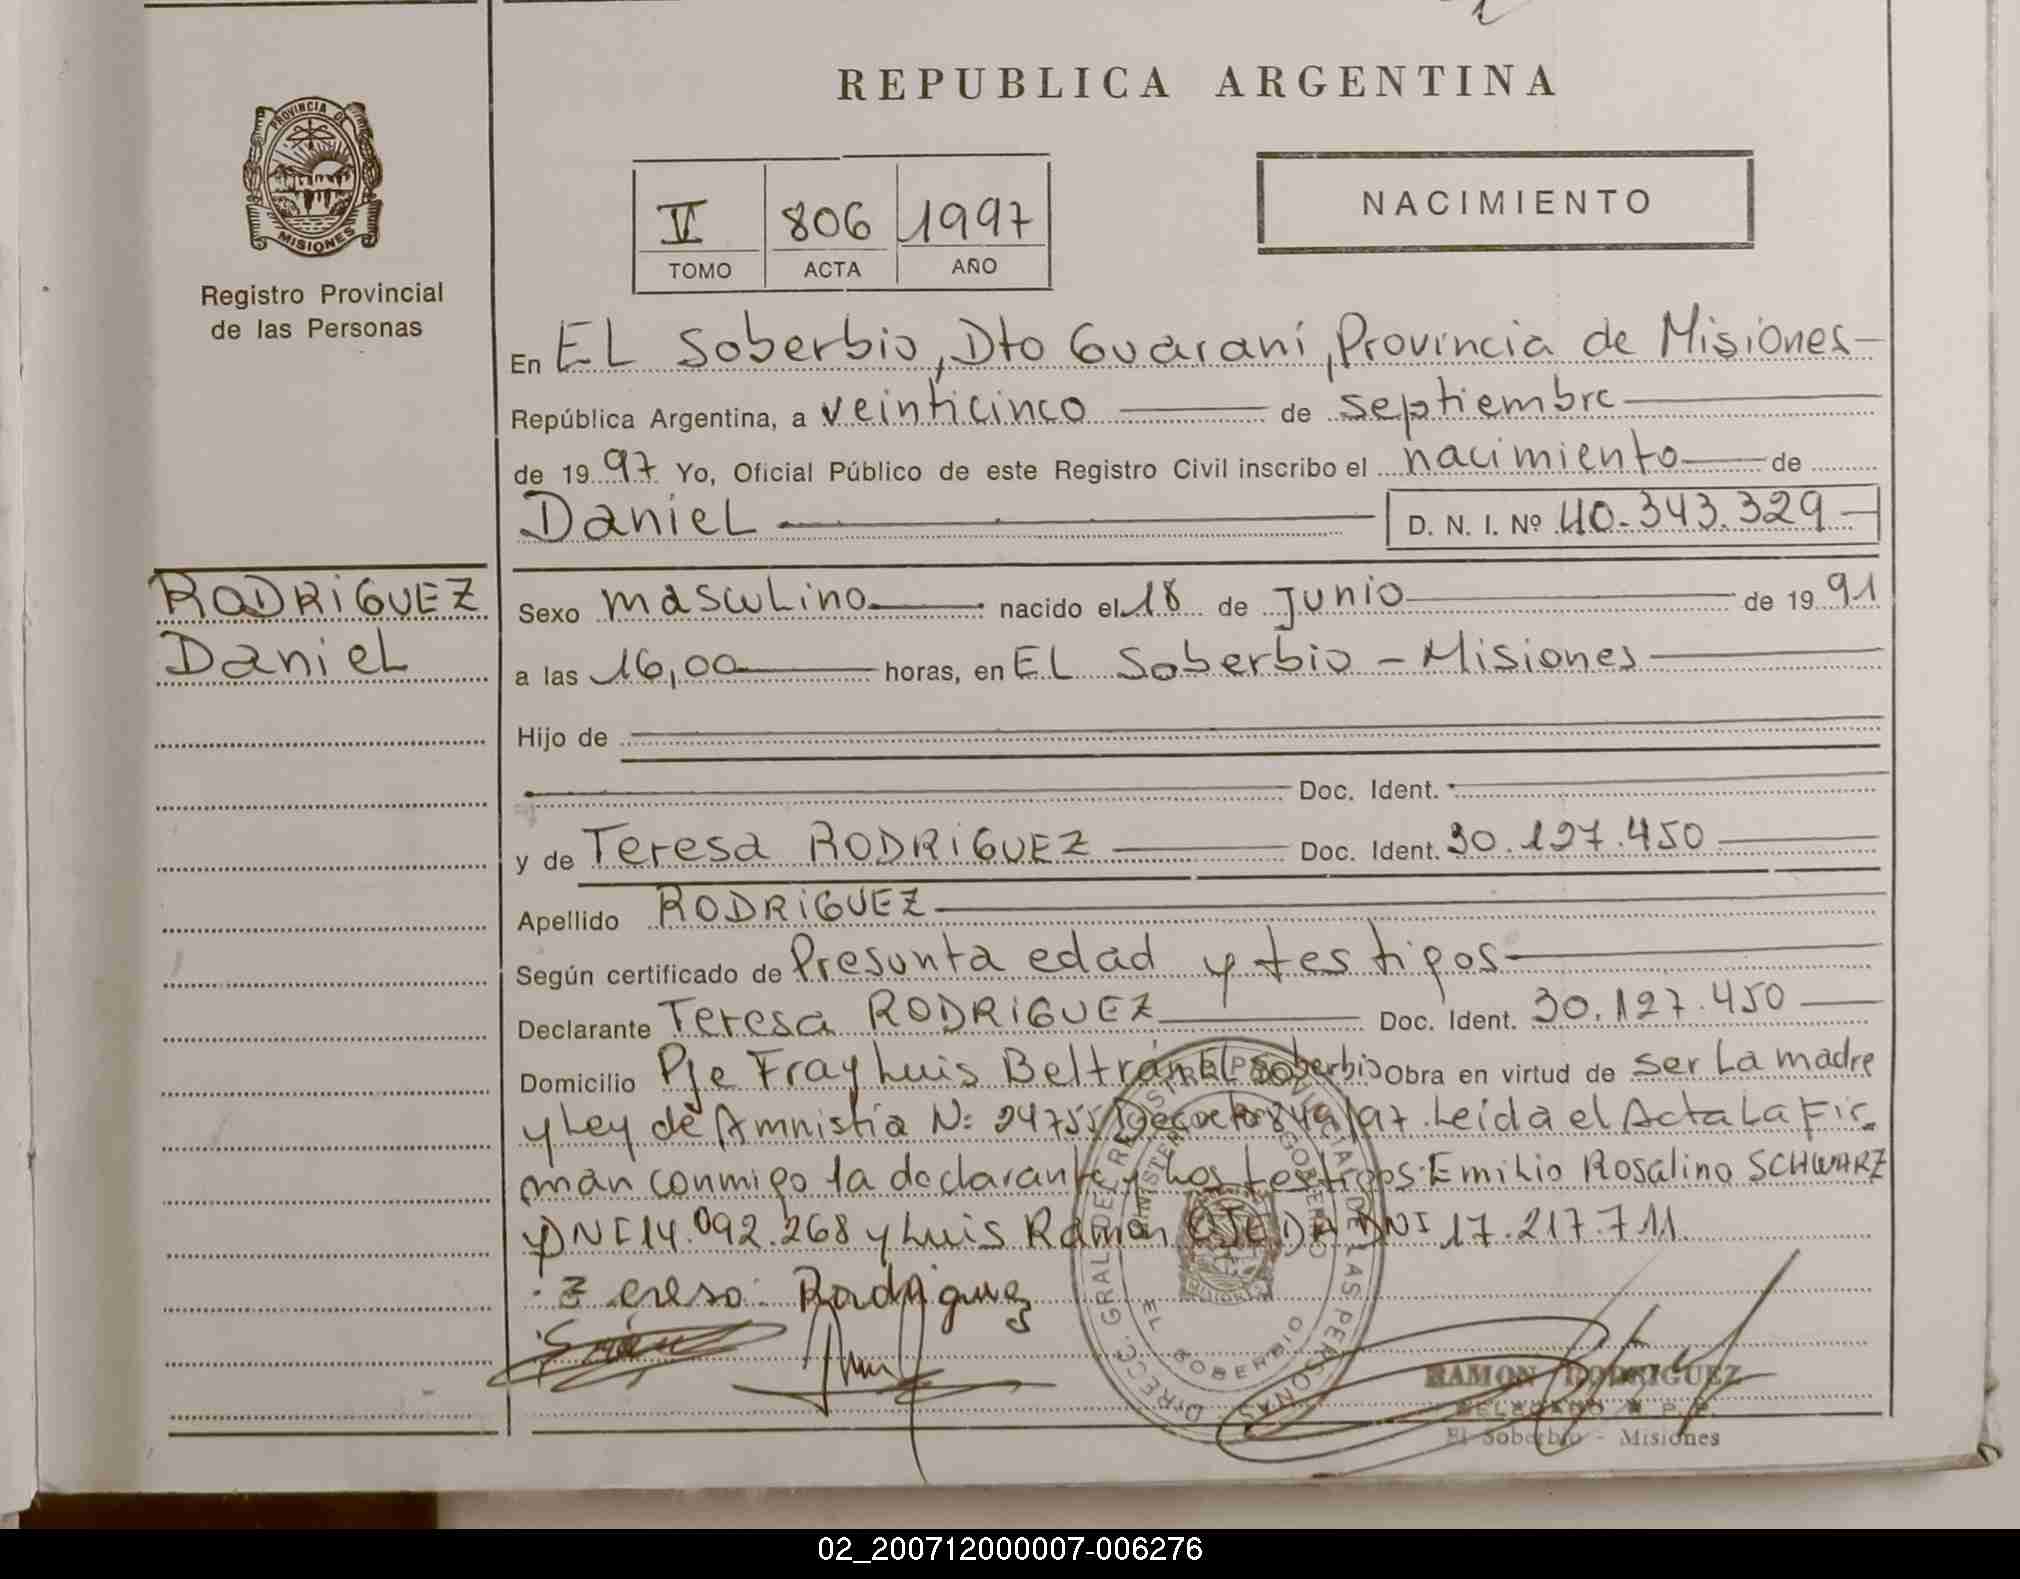 REPUBLICA ARGENTINA
PROVINCIA DE
MISIONES
Registro Provincial
de las Personas
V 806 1997
TOMO ACTA AÑO
NACIMIENTO
En EL Soberbio, Dto Guaraní, Provincia de Misiones
República Argentina, a veinticinco de septiembre
de 1997 Yo, Oficial Público de este Registro Civil inscribo el nacimiento de
DanieL D. N. I. Nº 40.343.329
RODRIGUEZ
DanieL
Sexo mascuLino nacido el 18 de Junio de 1991
a las 16,00 horas, en EL Soberbio - Misiones
Hijo de
Doc. Ident.
y de Teresa RODRIGUEZ Doc. Ident. 30.127.450
Apellido RODRIGUEZ
Según certificado de Presunta edad y testigos
Declarante Teresa RODRIGUEZ Doc. Ident. 30.127.450
Domicilio Pje Fray Luis Beltrán El Soberbio Obra en virtud de ser La madre
y Ley de Amnistia Nº 24755 Decreto 849/97. Leída el Acta La Fir
man conmigo la declarante y Los testigos: EmiLio Rosalino SCHWARZ
DNI 14.092.268 y Luis Ramón OJEDA DNI 17.217.711
Rodriguez
DIRECC. GRAL. DEL REGISTRO PROVINCIAL DE LAS PERSONAS
MINISTERIO GOBIERNO
EL SOBERBIO
RAMON RODRIGUEZ
DELEGADO R. P. P.
El Soberbio - Misiones
02_200712000007-006276